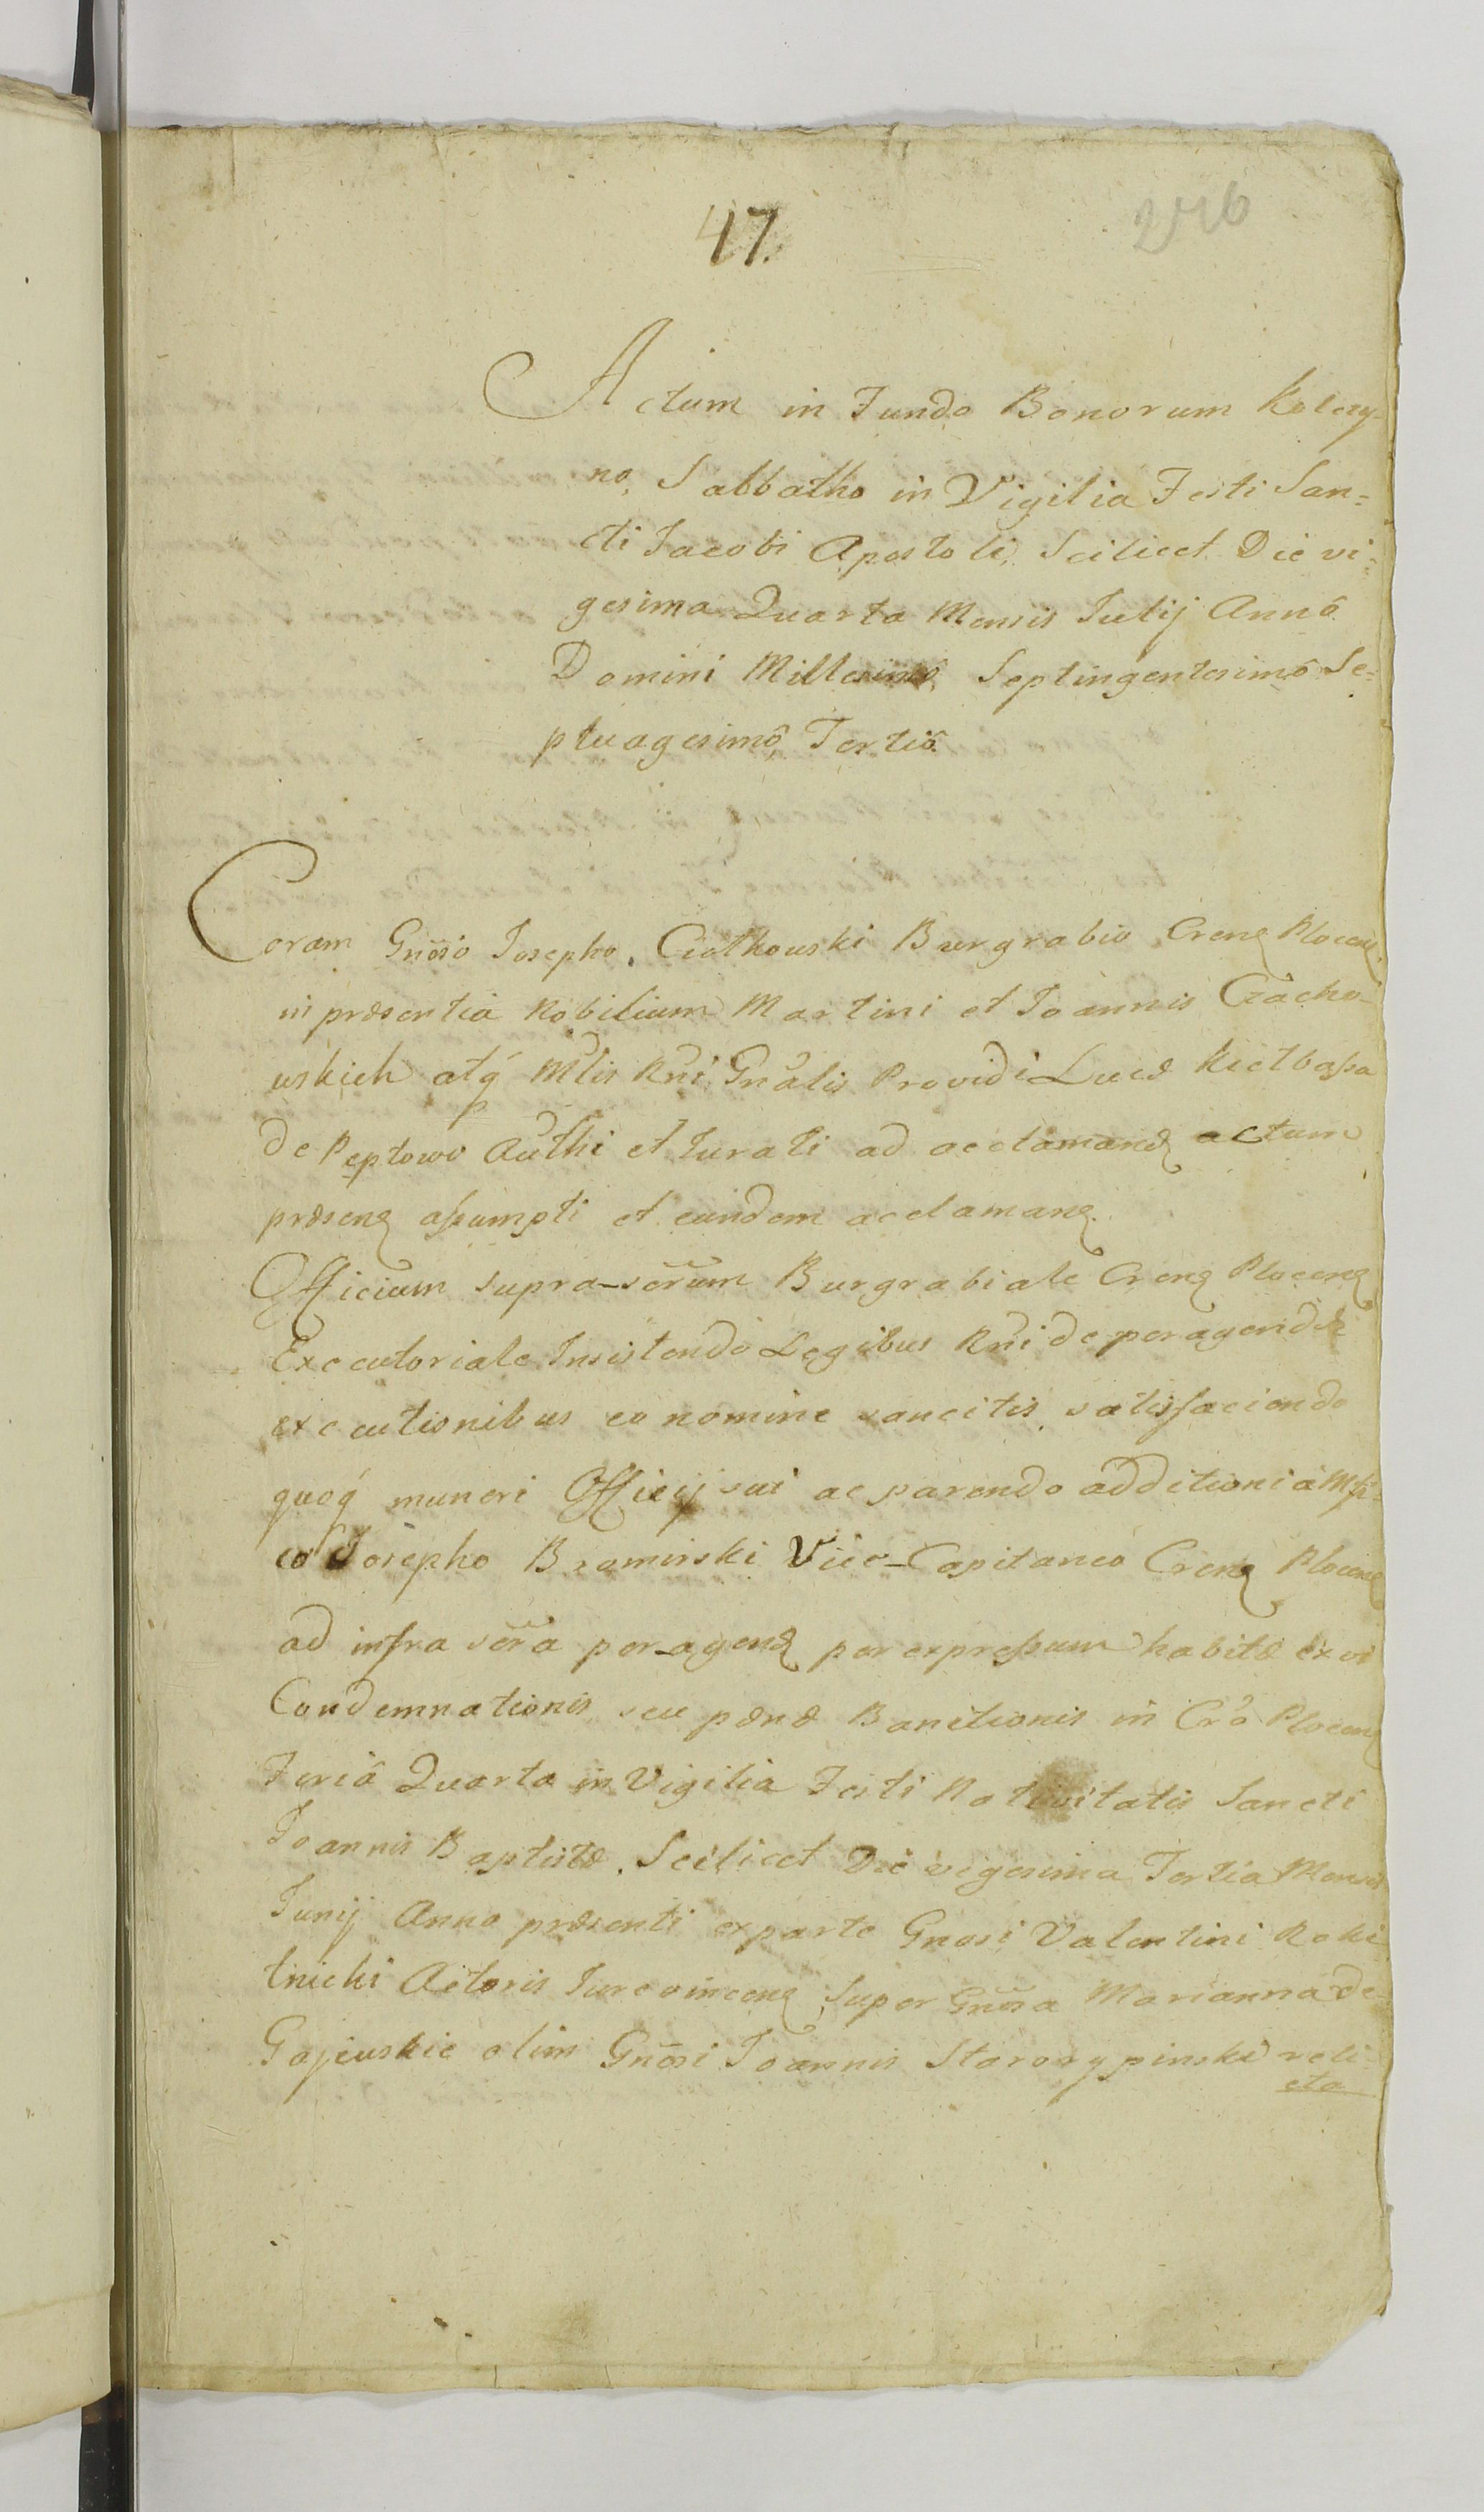 47.
246
Actum in Fundo Bonorum Kolczy-
no, Sabbatho in Vigilia Festi San=
cti Jacobi Apostoli, Scilicet Die vi=
gesima Quarta Mensis Julij Annô
Domini Millesimô, Septingentesimô Se=
ptuagesimô, Tertiô
Coram Gnoso Josepho, Ciołkowski Burgrabio Crenʒ Plocenʒ
in præsentia Nobilium Martini et Joannis Czacho-
wskich atq́ Mlis Rni Gnalis Providi Lucæ Kiełbaſsa
de Peptowo Authi et Jurati ad acclamandʒ actum
præsenʒ aſsumpti et eundem acclamanʒ.
Officium supra-scrum Burgrabiale Crenʒ Plocenʒ
Executoriale Insistendo Legibus Rni de peragendis
executionibus eo nomine sancitis, satisfaciendo
quoq́ muneri Officij sui ac parendo additioni à Mfi-
co Josepho Bromirski Vice-Capitaneo Crenʒ Plocenʒ
ad infra scra peragendʒ per expreſsum habitæ ex vi
Condemnationis seu pænæ Banitionis in Cro Plocenʒ
Feriâ Quarta in Vigilia Festi Nativitatis Sancti
Joannis Baptistæ, Scilicet Die vigesima Tertia Mensis
Junij Anno præsenti ex parte Gnosi Valentini Roki
tnicki Actoris Jure vincenʒ, super Gnosa Marianna de
Gojewskie olim Gnosi Joannis Starorypinski reli-
cta